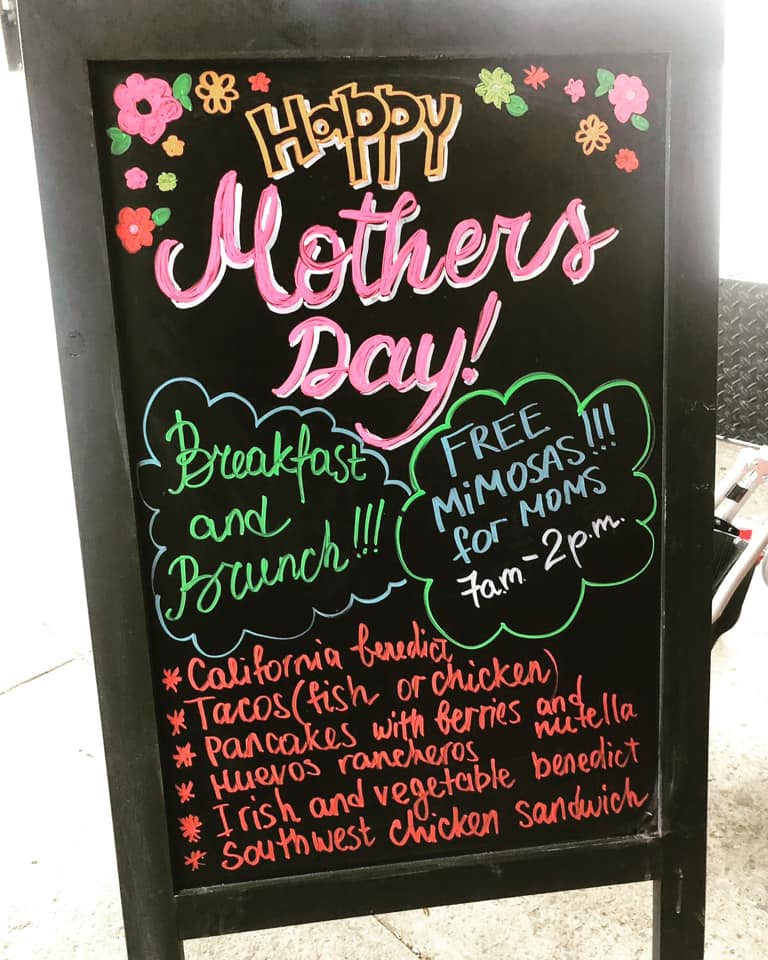 Happy
Mothers
Day!
Breakfast
and
Brunch!!!
FREE
MiMOSAS!!!
for MOMS
7a.m.-2p.m.
* California benedict
* Tacos (fish or chicken)
* Pancakes with berries and
nutella
* Huevos rancheros
* Irish and vegetable benedict
* Southwest chicken sandwich